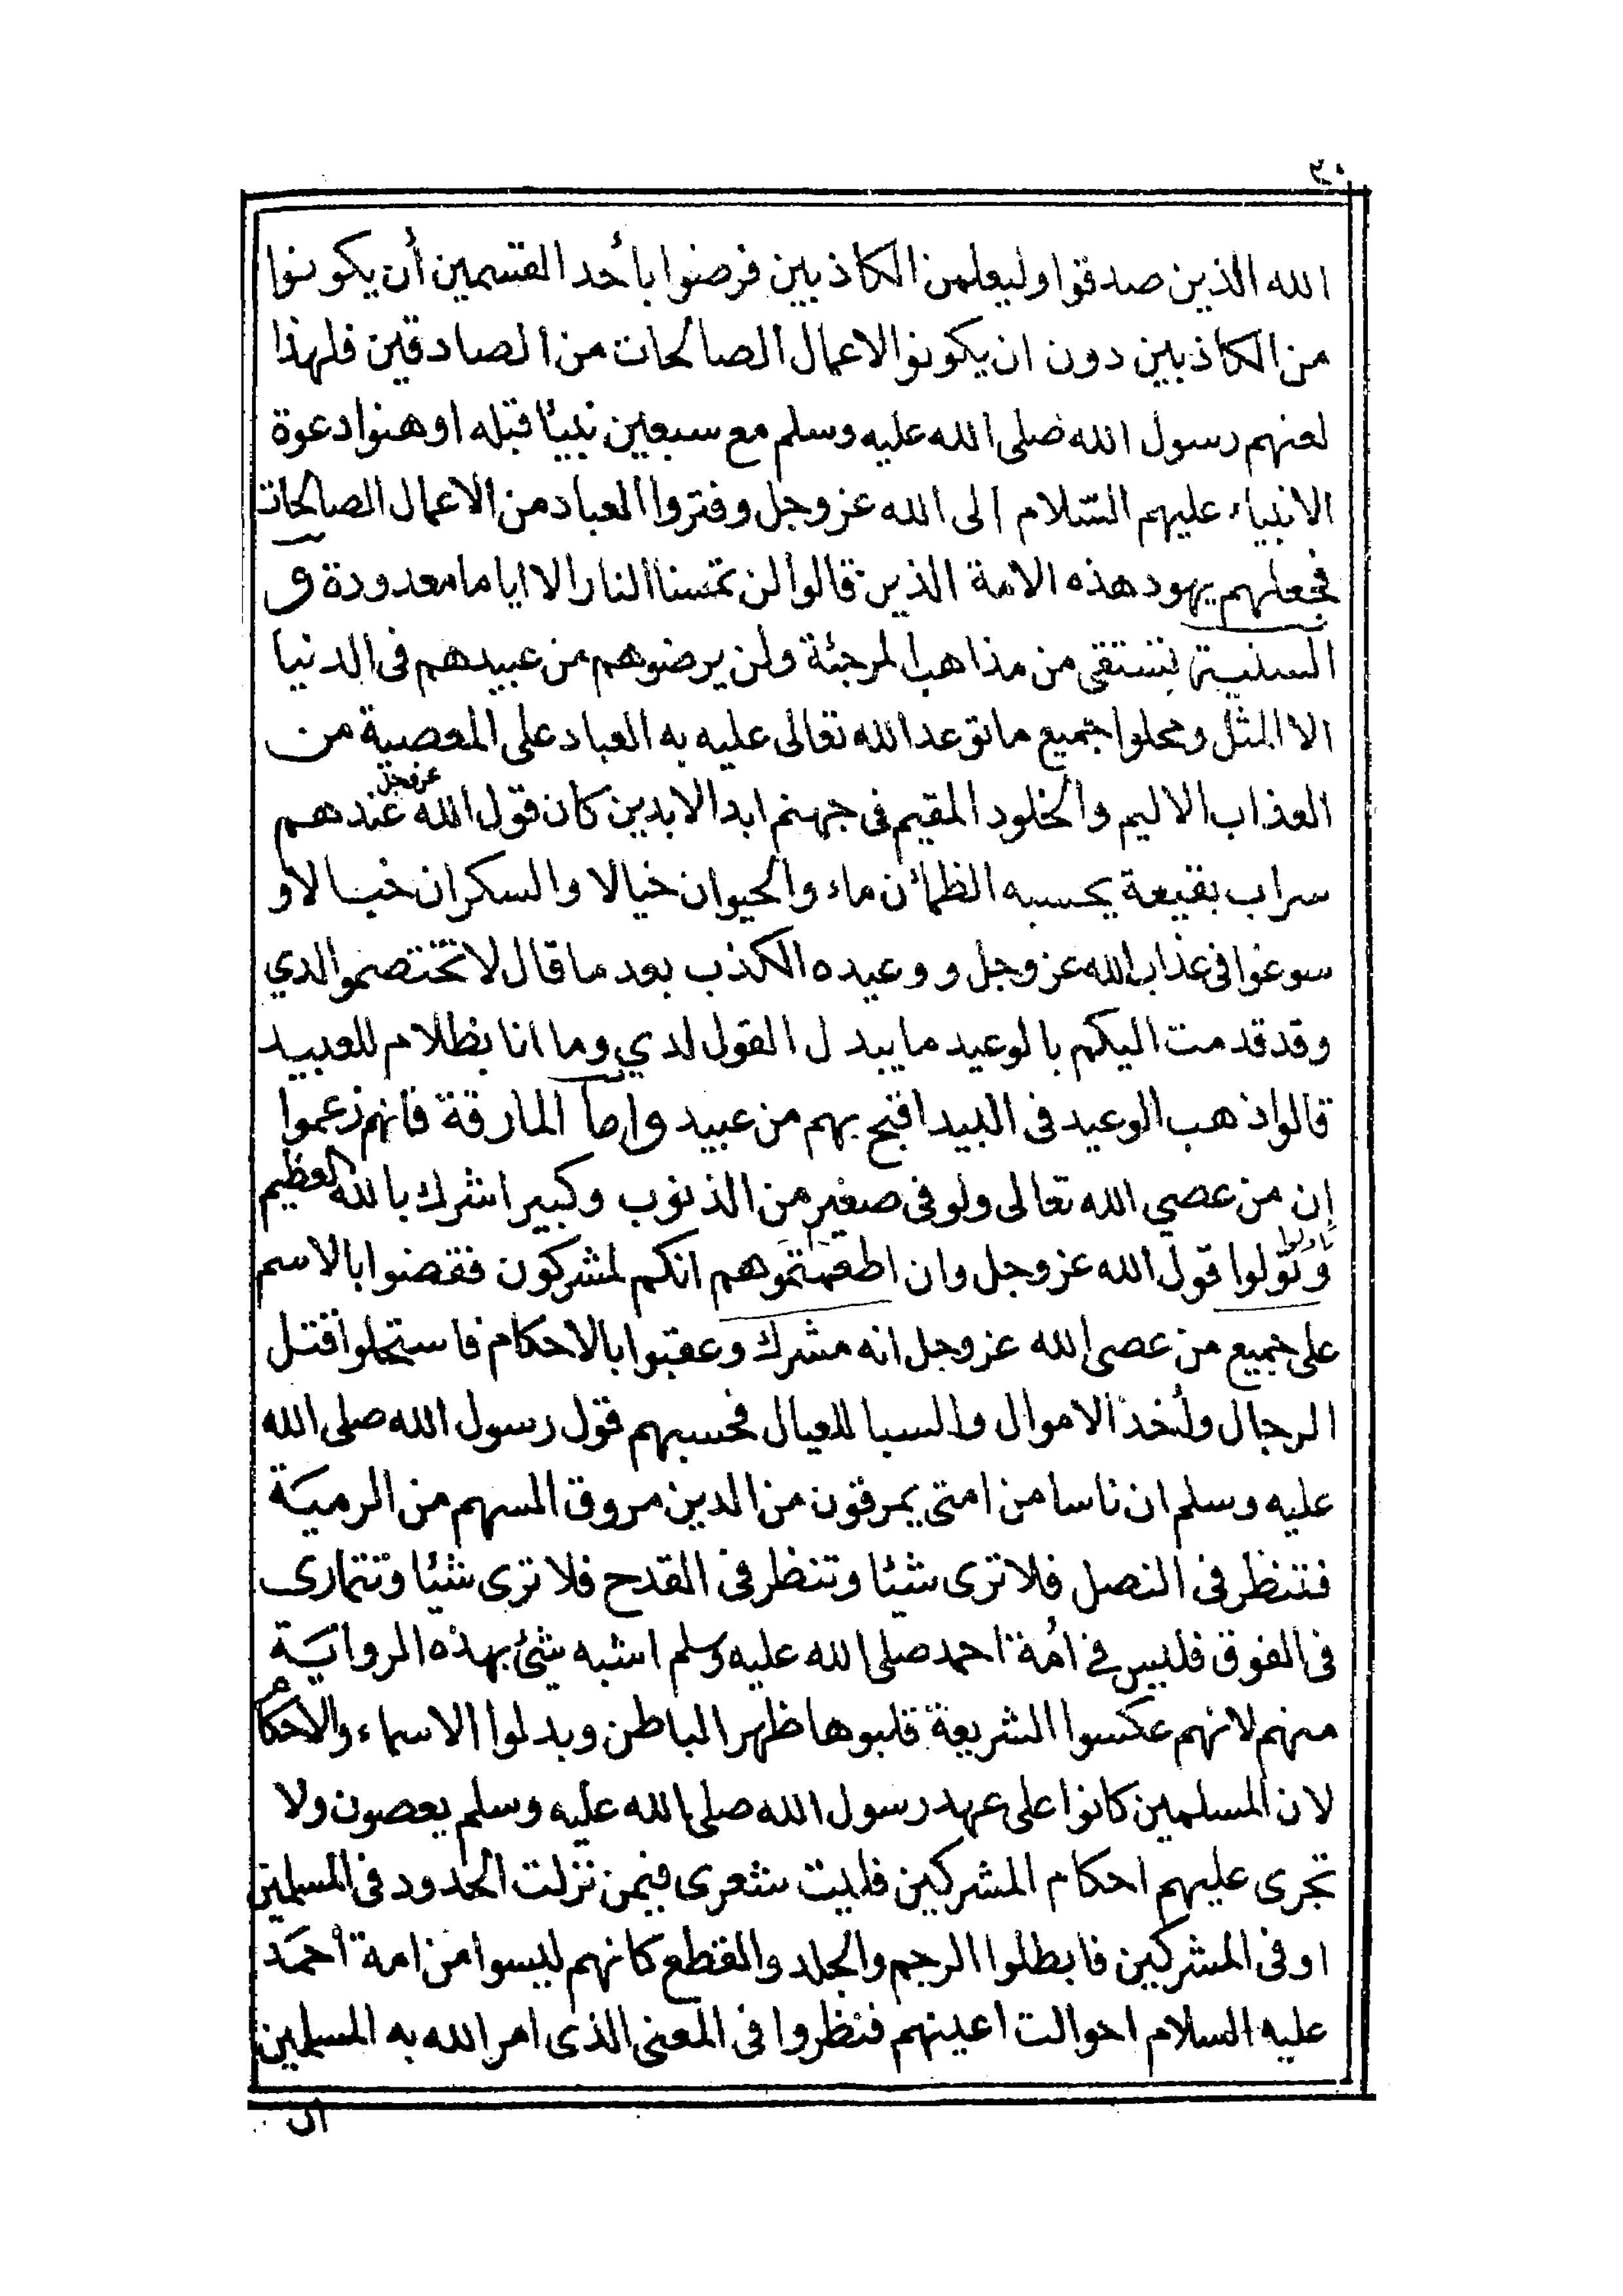 ٣٠
الله الذين صدقوا وليعلمن الكاذبين فرضوا بأحد القسمين أن يكونوا
من الكاذبين دون ان يكونوا الاعمال الصالحات من الصادقين فلهذا
لعنهم رسول الله صلى الله عليه وسلم مع سبعين نبيئا قبله اوهنوا دعوة
الانبياء عليهم السّلام الى الله عز وجل وفتروا العباد من الاعمال الصالحات
فجعلهم يهود هذه الامة الذين قالوا لن تمسنا النار الا اياما معدودة و
السنية تستقى من مذاهب المرجئة ولن يرضوهم من عبيدهم فى الدنيا
الا المثل ومحلوا جميع ما توعد الله تعالى عليه به العباد على المعصية من
العذاب الاليم والخلود المقيم فى جهنم ابد الابدين كان قول الله عز وجل عندهم
سراب بقيعة يحسبه الظمائن ماء والحيوان خيالا والسكران خبالا و
سوغوا فى عذاب الله عز وجل و وعيده الكذب بعد ما قال لا تختصموا لدي
وقد قدمت اليكم بالوعيد ما يبدل القول لدي وما انا بظلام للعبيد
قالوا ذهب الوعيد فى البيد اقبح بهم من عبيد وامّا المارقة فانهم زعموا
إن من عصي الله تعالى ولو فى صغير من الذنوب وكبير اشرك بالله العظيم
تأولوا
وتوّلوا قول الله عز وجل وان اطعمتموهم انكم لمشركون فقضوا بالاسم
على جميع من عصى الله عز وجل انه مشرك وعقبوا بالاحكام فاستحلوا قتل
الرجال وأخذ الاموال والسبا للعيال فحسبهم قول رسول الله صلى الله
عليه وسلم ان ناسا من امتى يمرقون من الدين مروق السهم من الرمية
فتنظر فى النصل فلا ترى شيئا وتنظر فى القدح فلا ترى شيئا وتتمارى
فى الفوق فليس في امُة احمد صلى الله عليه وسلم اشبه شئ بهذه الرواية
منهم لانهم عكسوا الشريعة قلبوها ظهرا لباطن وبدلوا الاسماء والاحكام
لان المسلمين كانوا على عهد رسول الله صلى الله عليه وسلم يعصون ولا
تجرى عليهم احكام المشركين فليت شعرى فيمن نزلت الحدود فى المسلمين
او فى المشركين فابطلوا الرجم والجلد والقطع كانهم ليسوا من امة أحمَد
عليه السلام احوالت اعينهم فنظروا فى المعنى الذى امر الله به المسلمين